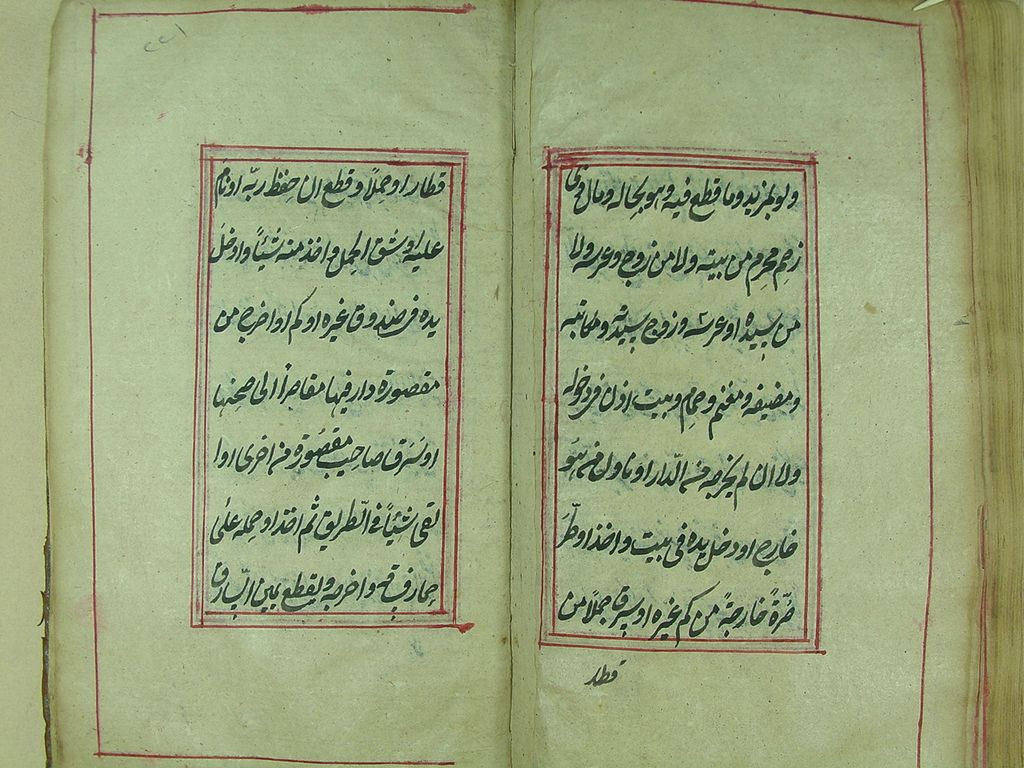 ولو لمزيد وما قطع فيه وهو بحاله ومال ذى
رحم محرم من بيته ولا من زوج وعرسه ولا
من سيده او عرسه وزوج سيدته ومكاتبه
ومضيفه ومغنم وحمام وبيت اذن فى دخوله
ولا ان لم يخرجه من الدار او ناول من هو
خارج او دخل يده فى بيت واخذ او طرّ
صُرّةً خارجةً من كم غيره او سرق جملاً من
قطار
٢٢١
قطار او حِملاً وقطع ان حفظ ربّه او نام
عليه او شق الحمل واخذ منه شيئاً وادخل
يده فى صندوق غيره او كم او اخرج من
مقصورة دار فيها مقاصر الى صحنها
او سَرَق صاحب مقصُورة من اخرى او ا
لقى شيئاً فى الطريق ثم اخذ او حمله على
حمار فساقه واخرجه ويقطع يمين السّارق